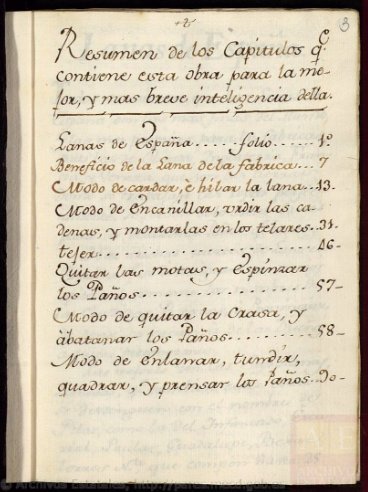 3
Resumen de los Capitulos q.e
contiene esta obra para la me-
jor, y mas breve inteligencia della.
Lanas de España..... folio.... 1º
Beneficio de la Lana de la fabrica... 7
Modo de cardar, è hilar la lana..13.
Modo de Encanillar, vrdir las ca-
denas, y montarlas en los telares..31.
tejer.................. 46-
Quitar las motas, y Espinzar
los Paños............ 57-
Modo de quitar la Grasa, y
àbatanar los Paños..... 58-
Modo de Enlanar, tundir,
quadrar, y prensar los Paños..90-
© Archivos Estatales, http://pares.mcu.es